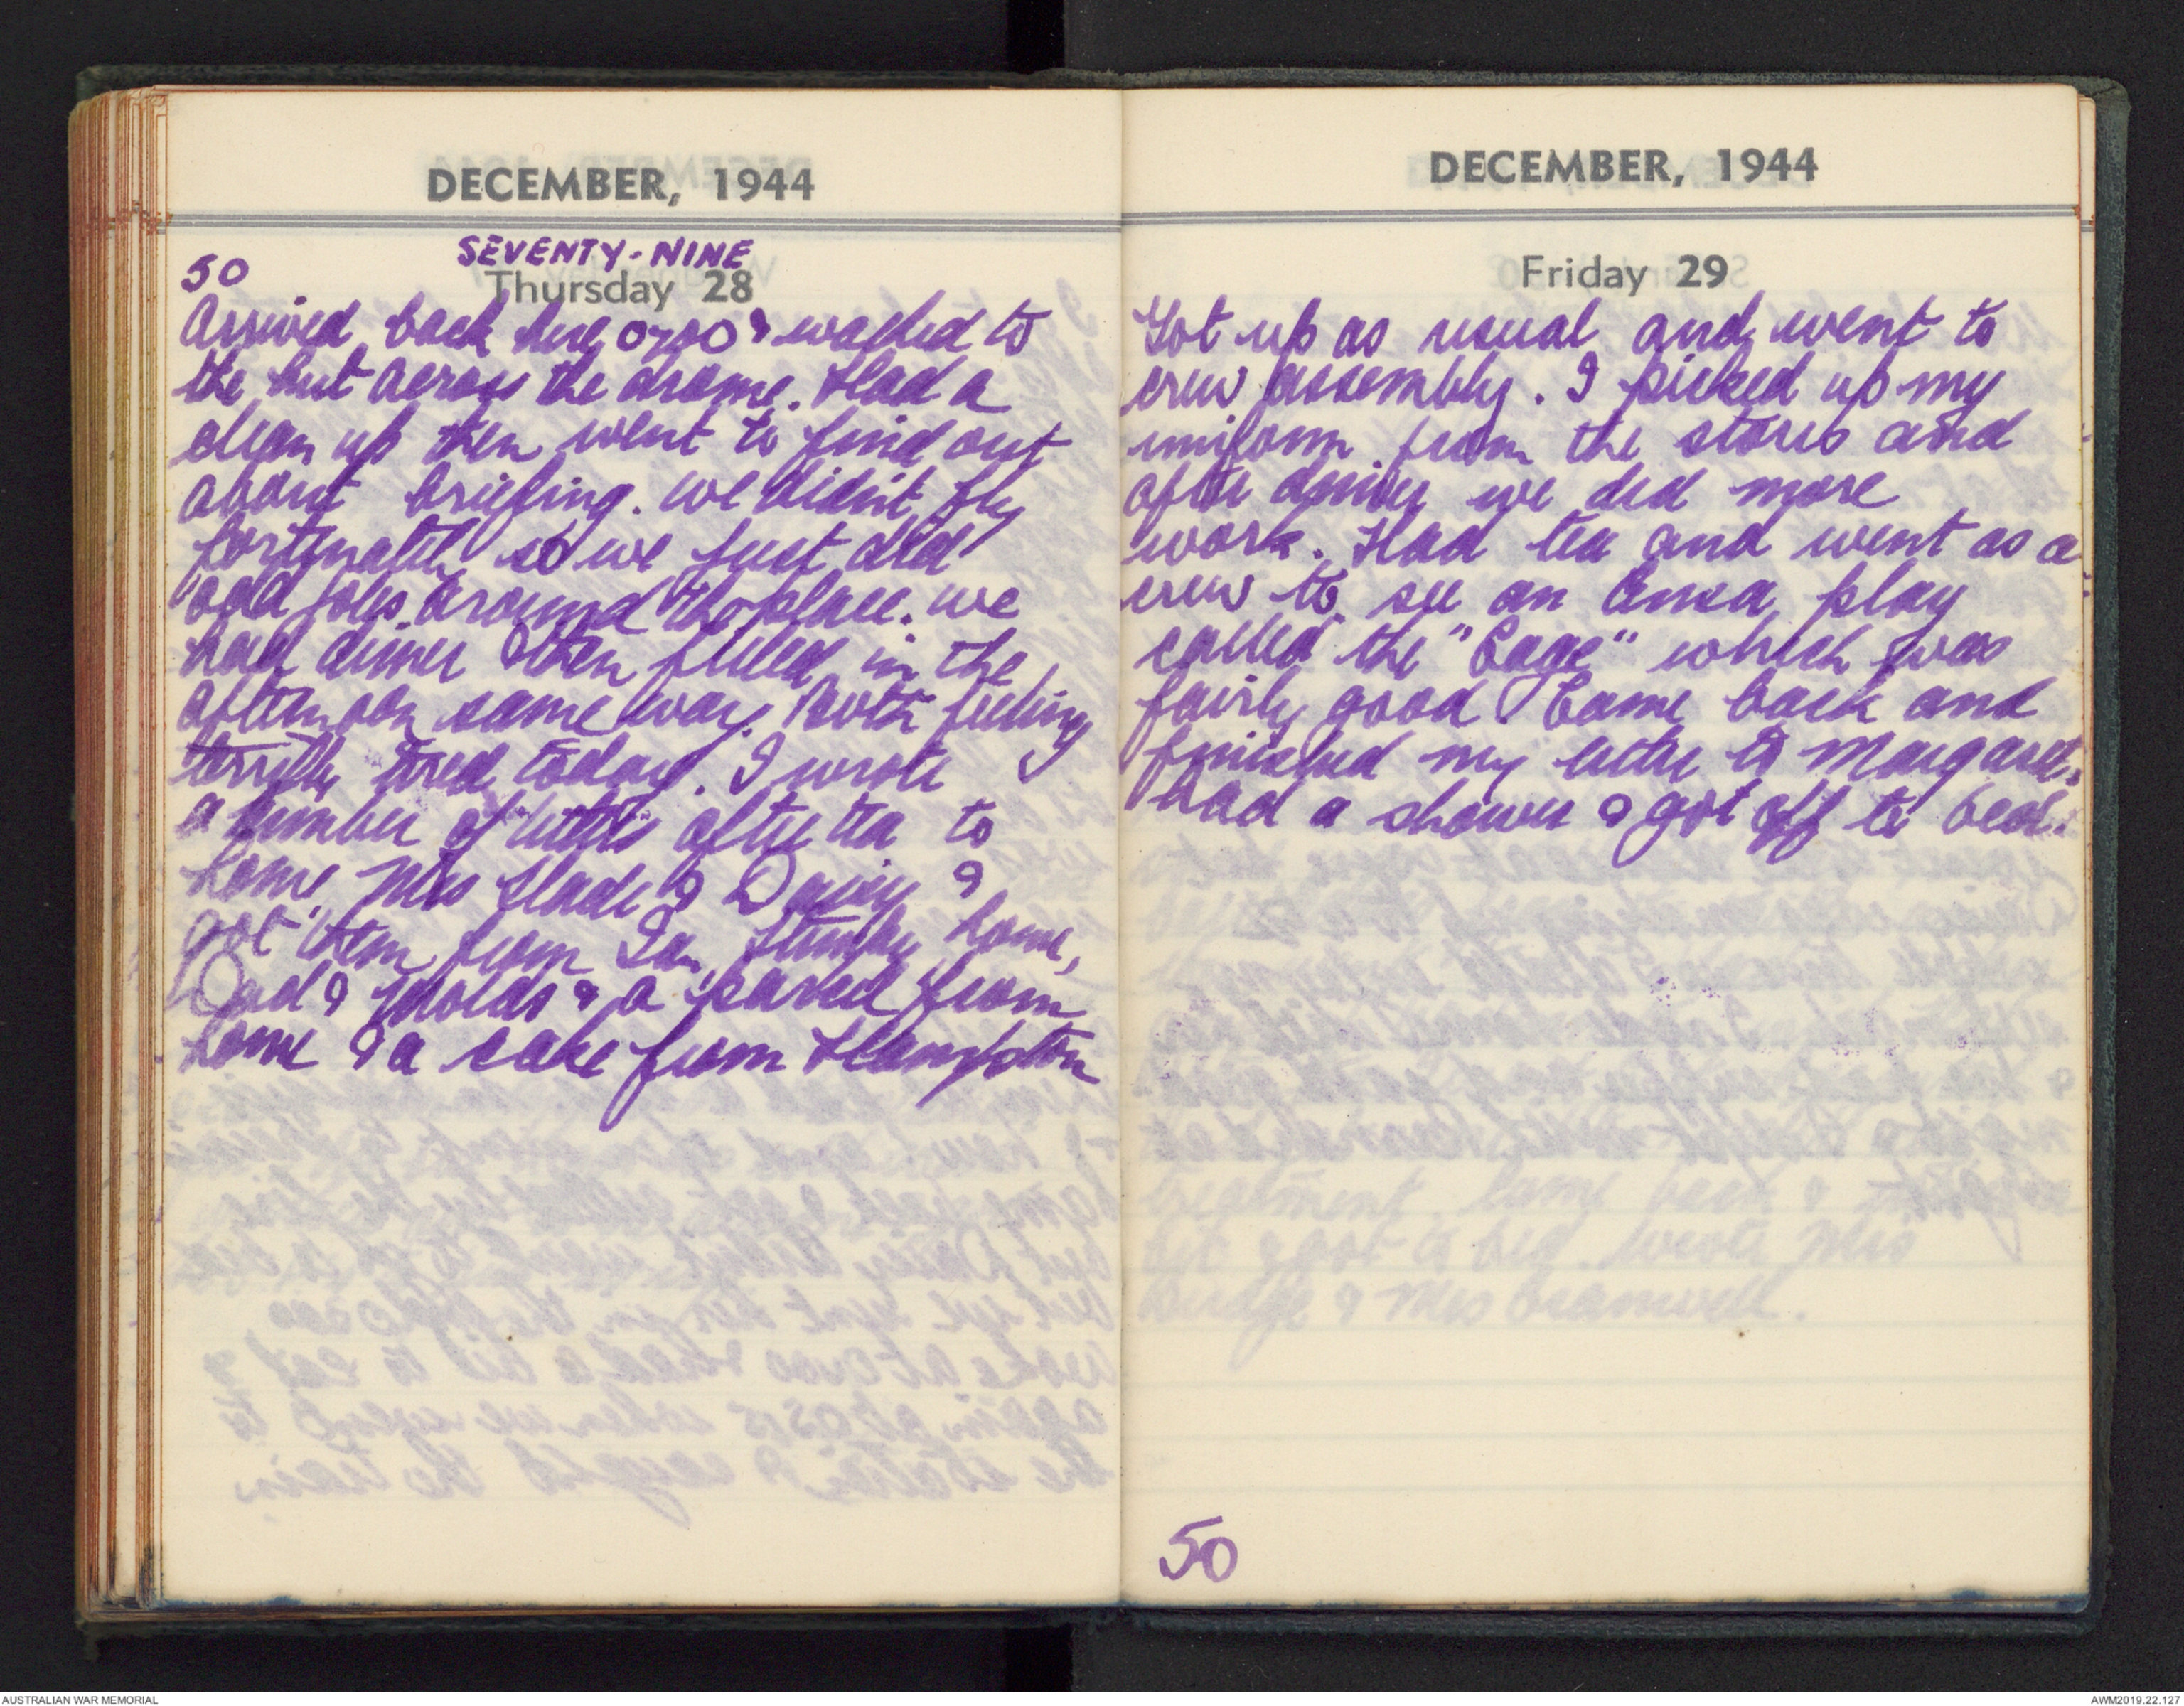 DECEMBER, 1944
50
SEVENTY-NINE
Thursday 28
Arrived back here 0700 & walked to
the hut across the drome. Had a
clean up then went to find out
about briefing. We didn't fly
fortunately so we just did
odd jobs around the place. We
had dinner & then filled in the
afternoon same way. Both feeling
terribly tired today. I wrote
a number of letters after tea to
home, Mrs Slade & Daisy &
got them from Ian, home,
Dad & & a parcel from
home & a cake from Hampton
DECEMBER, 1944
Friday 29
Got up as usual and went to
crew assembly. I picked up my
uniform from the stores and
after dinner we did more
work. Had tea and went as a
crew to see an Ensa play
called the "Cage" which was
fairly good. Came back and
finished my letter to Margaret.
Had a shower & got off to bed.
50
AUSTRALIAN WAR MEMORIAL
AWM2019.22.127